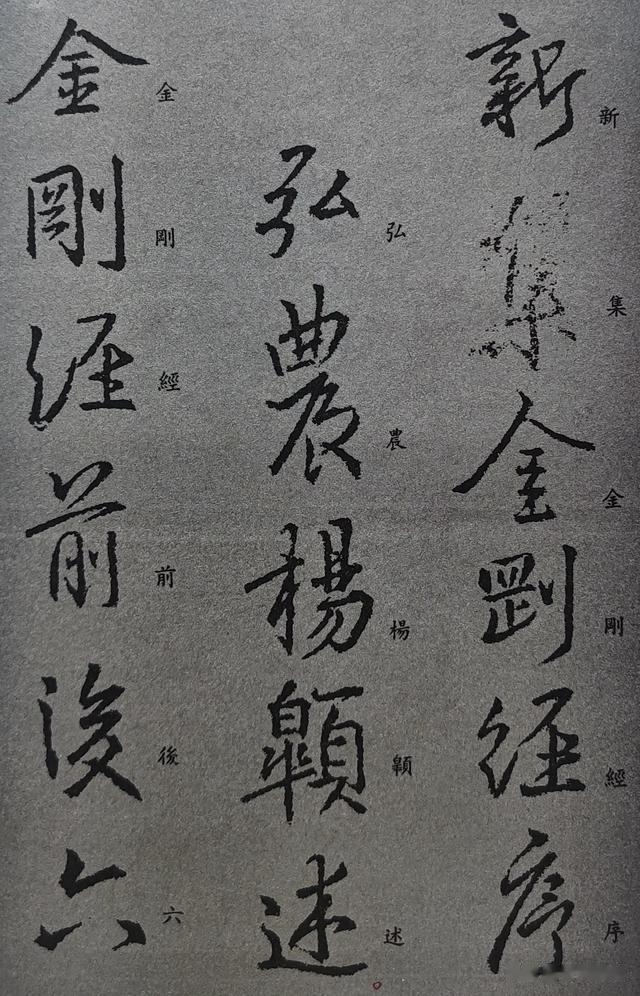 新集金剛經序
弘農楊顗述
金剛經前後六